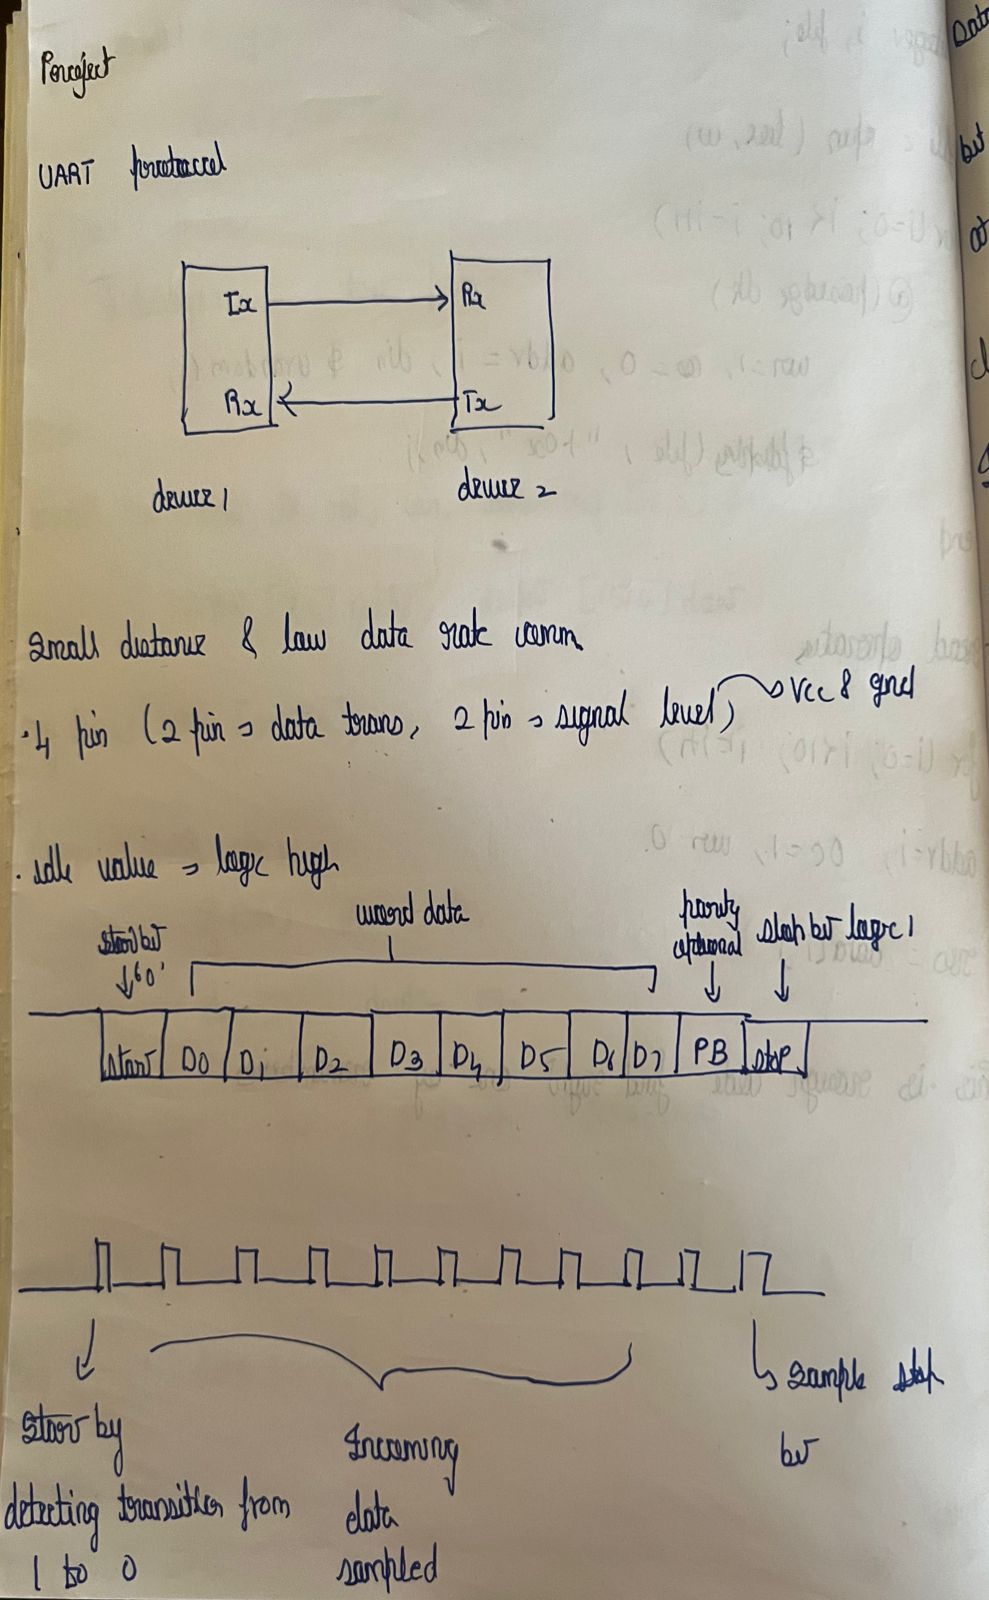 Project
UART protocol
Tx
Rx
Rx
Tx
device 1
device 2
Small distance & low data rate comm
. 4 pin (2 pin → data trans, 2 pin → signal level) → Vcc & gnd
. idle value → logic high
word data
start bit
'0'
parity
optional
stop bit logic 1
start D0 D1 D2 D3 D4 D5 D6 D7 PB stop
Start by
detecting transition from
1 to 0
Incoming
data
sampled
sample stop
bit